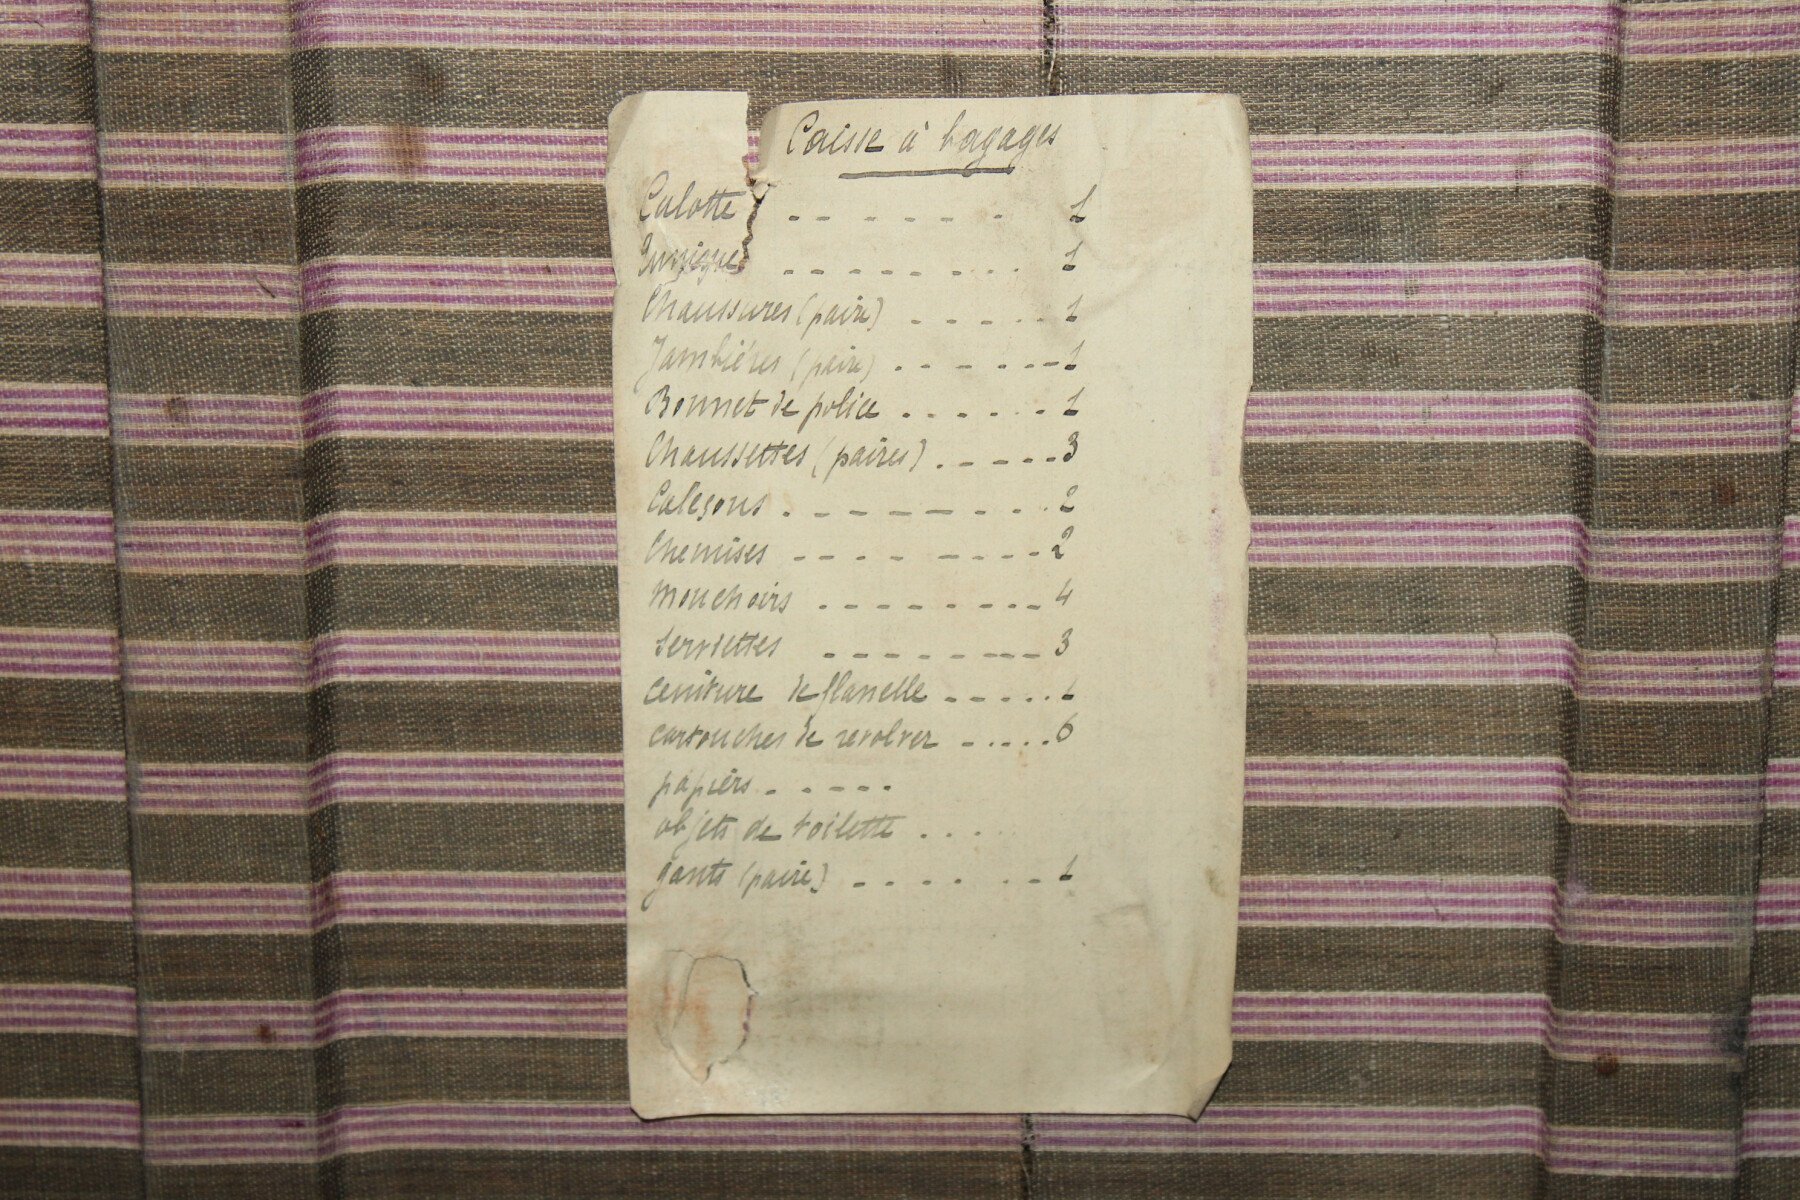 Caisse à bagages
Culotte - - - - - - - 1
Tunique - - - - - - - - 1
Chaussures (paire) - - - - - 1
Jambières (paire) - - - - - - 1
Bonnet de police . . . . . . 1
Chaussettes (paires) . - - - - 3
Caleçons . - - - - - - - 2
Chemises - - - - - - - - 2
Mouchoirs - - - - - - - - - 4
Serviettes - - - - - - - - 3
Ceinture de flanelle - - - - - 1
cartouches de revolver - - - - - 6
papiers - - - - -
objets de toilette . . . .
gants (paire) - - - - - - 1